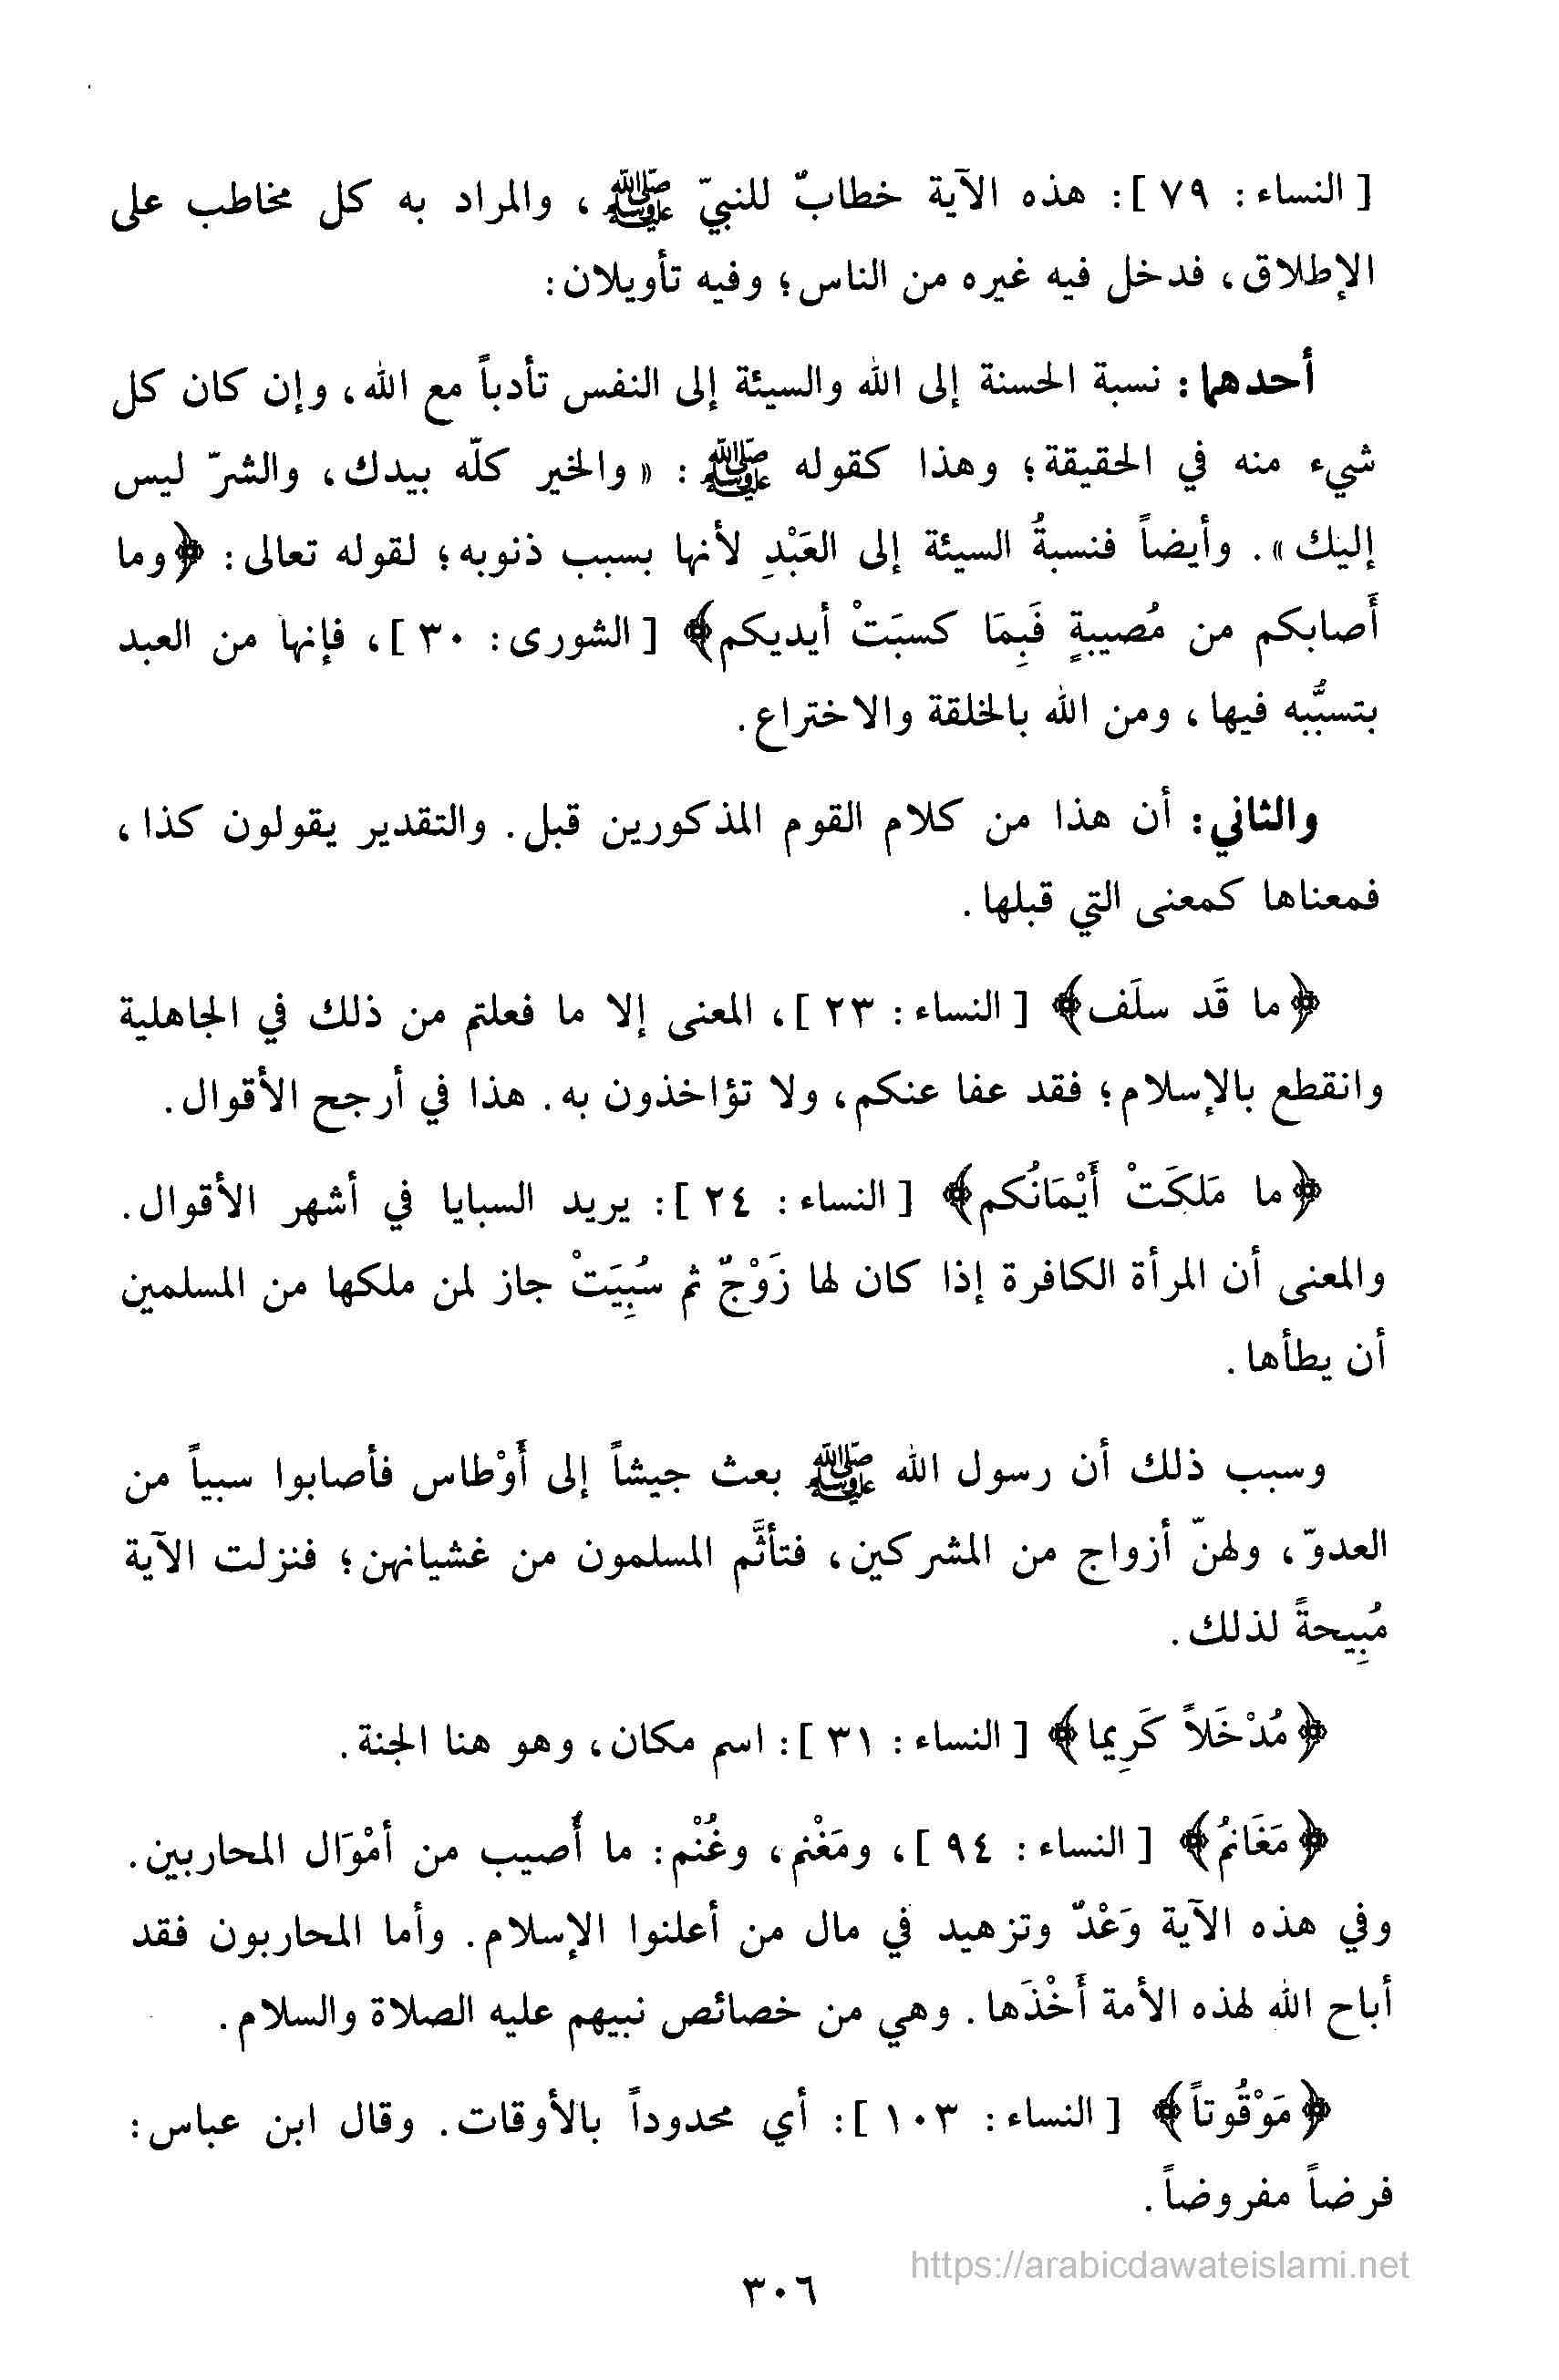 [ النساء: ٧٩ ]: هذه الآية خطابٌ للنبيّ ﷺ، والمراد به كل مخاطب على
الإطلاق، فدخل فيه غيره من الناس؛ وفيه تأويلان:
أحدهما: نسبة الحسنة إلى الله والسيئة إلى النفس تأدباً مع الله، وإن كان كل
شيء منه في الحقيقة؛ وهذا كقوله ﷺ: «والخير كلّه بيدك، والشرّ ليس
إليك». وأيضاً فنسبةُ السيئة إلى العَبْدِ لأنها بسبب ذنوبه؛ لقوله تعالى: ﴿وما
أَصابكم من مُصيبةٍ فَبِمَا كسبَتْ أيديكم﴾ [ الشورى: ٣٠ ]، فإنها من العبد
بتسبُّبه فيها، ومن الله بالخلقة والاختراع.
والثاني: أن هذا من كلام القوم المذكورين قبل. والتقدير يقولون كذا،
فمعناها كمعنى التي قبلها.
﴿ما قَد سلَف﴾ [ النساء: ٢٣ ]، المعنى إلا ما فعلتم من ذلك في الجاهلية
وانقطع بالإسلام؛ فقد عفا عنكم، ولا تؤاخذون به. هذا في أرجح الأقوال.
﴿ما مَلكَتْ أَيْمَانُكم﴾ [ النساء: ٢٤ ]: يريد السبايا في أشهر الأقوال.
والمعنى أن المرأة الكافرة إذا كان لها زَوْجٌ ثم سُبِيَتْ جاز لمن ملكها من المسلمين
أن يطأها.
وسبب ذلك أن رسول الله ﷺ بعث جيشاً إلى أَوْطاس فأصابوا سبياً من
العدوّ، ولهنّ أزواج من المشركين، فتأثَّم المسلمون من غشيانهن؛ فنزلت الآية
مُبِيحةً لذلك.
﴿مُدْخَلاً كَرِيما﴾ [ النساء: ٣١ ]: اسم مكان، وهو هنا الجنة.
﴿مَغَانمُ﴾ [ النساء: ٩٤ ]، ومَغْنم، وغُنْم: ما أُصيب من أمْوَال المحاربين.
وفي هذه الآية وَعْدٌ وتزهيد في مال من أعلنوا الإسلام. وأما المحاربون فقد
أباح الله لهذه الأمة أَخْذَها. وهي من خصائص نبيهم عليه الصلاة والسلام.
﴿مَوْقُوتاً﴾ [ النساء: ١٠٣ ]: أي محدوداً بالأوقات. وقال ابن عباس:
فرضاً مفروضاً.
https://arabicdawateislami.net
٣٠٦